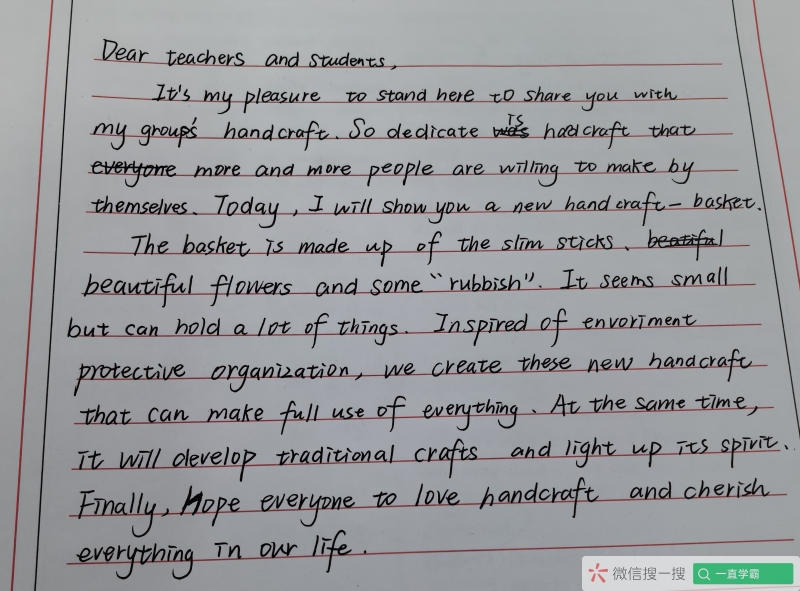 Dear teachers and students,
It's my pleasure to stand here to share you with
my group's handcraft. So dedicate is hadcraft that
more and more people are willing to make by
themselves. Today, I will show you a new handcraft - basket.
The basket is made up of the slim sticks.
beautiful flowers and some "rubbish". It seems small
but can hold a lot of things. Inspired of envoriment
protective organization, we create these new handcraft
that can make full use of everything. At the same time,
it will develop traditional crafts and light up its spirit.
Finally, Hope everyone to love handcraft and cherish
everything in our life.
微信搜一搜 一直学霸